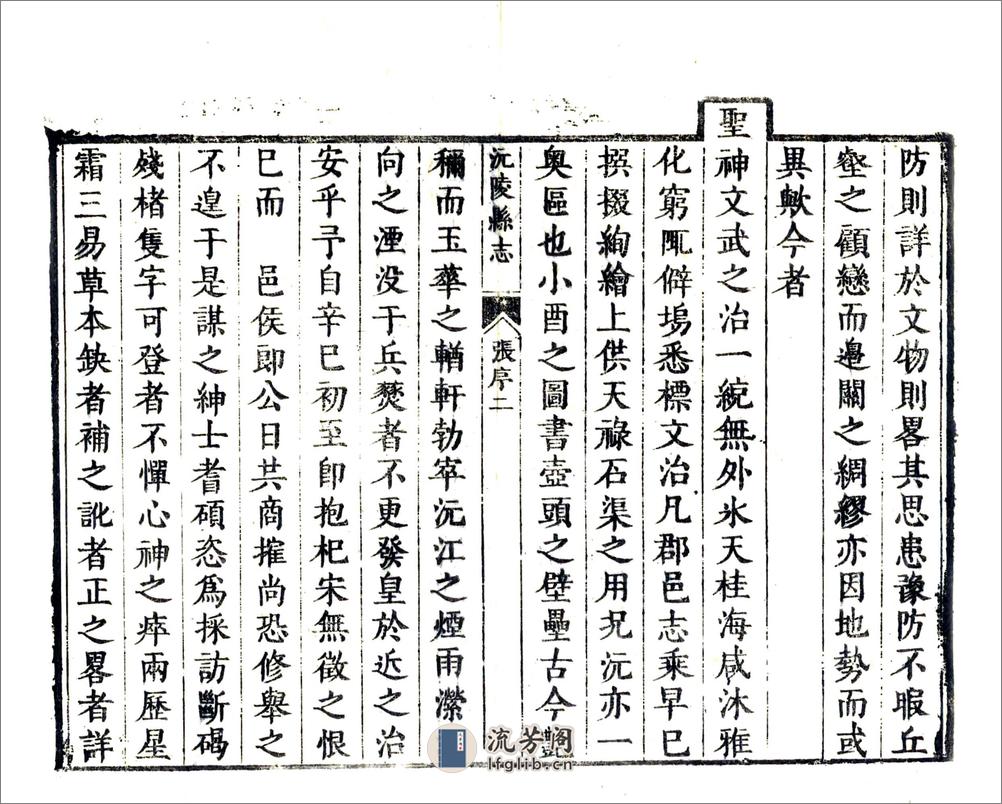 防則詳於文物則畧其思患豫防不暇丘
壑之顧戀而邊關之綢繆亦因地勢而或
異歟今者
聖神文武之治一統無外氷天桂海咸沐雅
化窮陬僻埸悉標文治凡郡邑志乘早已
撰掇絢繪上供天祿石渠之用况沅亦一
奥區也小酉之圖書壺頭之壁壘古今
沅陵縣志
張序二
稱而玉華之輶軒勃窣沅江之煙雨瀠
向之湮没于兵燹者不更發皇於近之治
安乎予自辛巳初至卽抱杞宋無徵之恨
已而 邑侯郎公日共商搉尚恐修舉之
不遑于是謀之紳士耆碩恣爲採訪斷碣
殘楮隻字可登者不憚心神之瘁兩歷星
霜三易草本缺者補之訛者正之畧者詳
流芳閣
lfglib.cn